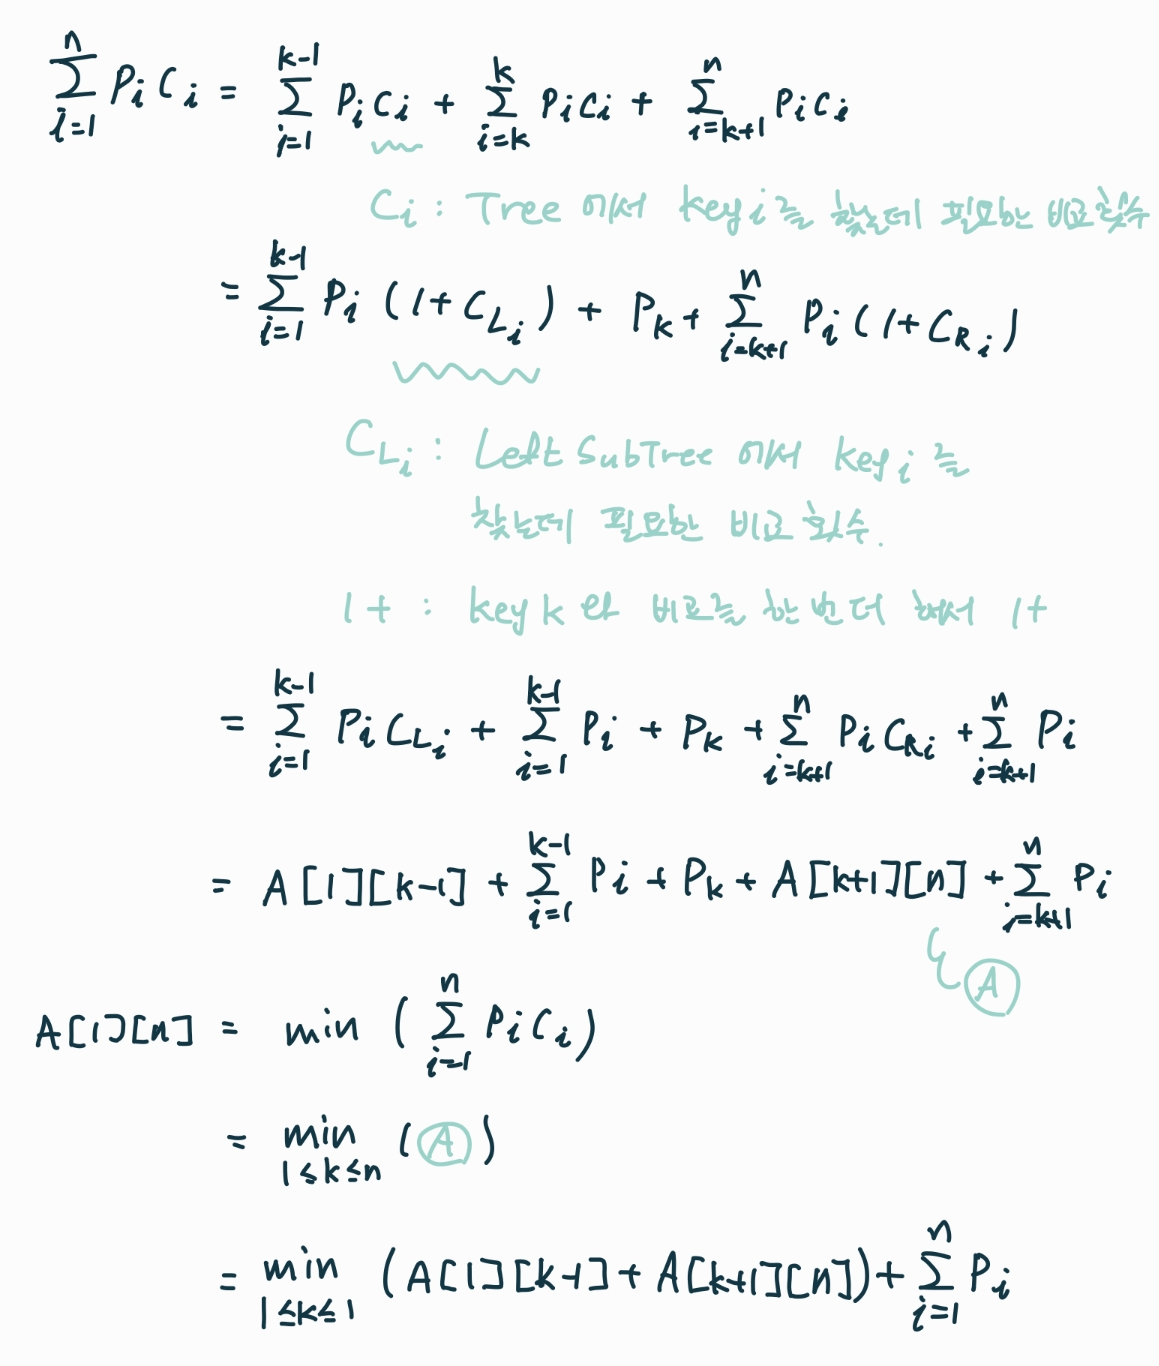 ∑_{i=1}^{n} P_i C_i = ∑_{i=1}^{k-1} P_i C_i + ∑_{i=k}^{k} P_i C_i + ∑_{i=k+1}^{n} P_i C_i
C_i : Tree 에서 key i를 찾는데 필요한 비교횟수
= ∑_{i=1}^{k-1} P_i (1+C_{L_i}) + P_k + ∑_{i=k+1}^{n} P_i (1+C_{R_i})
C_{L_i} : Left SubTree 에서 key i 를
찾는데 필요한 비교 횟수.
1+ : key k 와 비교를 한 번 더 해서 1+
= ∑_{i=1}^{k-1} P_i C_{L_i} + ∑_{i=1}^{k-1} P_i + P_k + ∑_{i=k+1}^{n} P_i C_{R_i} + ∑_{i=k+1}^{n} P_i
= A[1][k-1] + ∑_{i=1}^{k-1} P_i + P_k + A[k+1][n] + ∑_{i=k+1}^{n} P_i
Ⓐ
A[1][n] = min (∑_{i=1}^{n} P_i C_i)
= min_{1≤k≤n} (Ⓐ)
= min_{1≤k≤1} (A[1][k-1] + A[k+1][n]) + ∑_{i=1}^{n} P_i